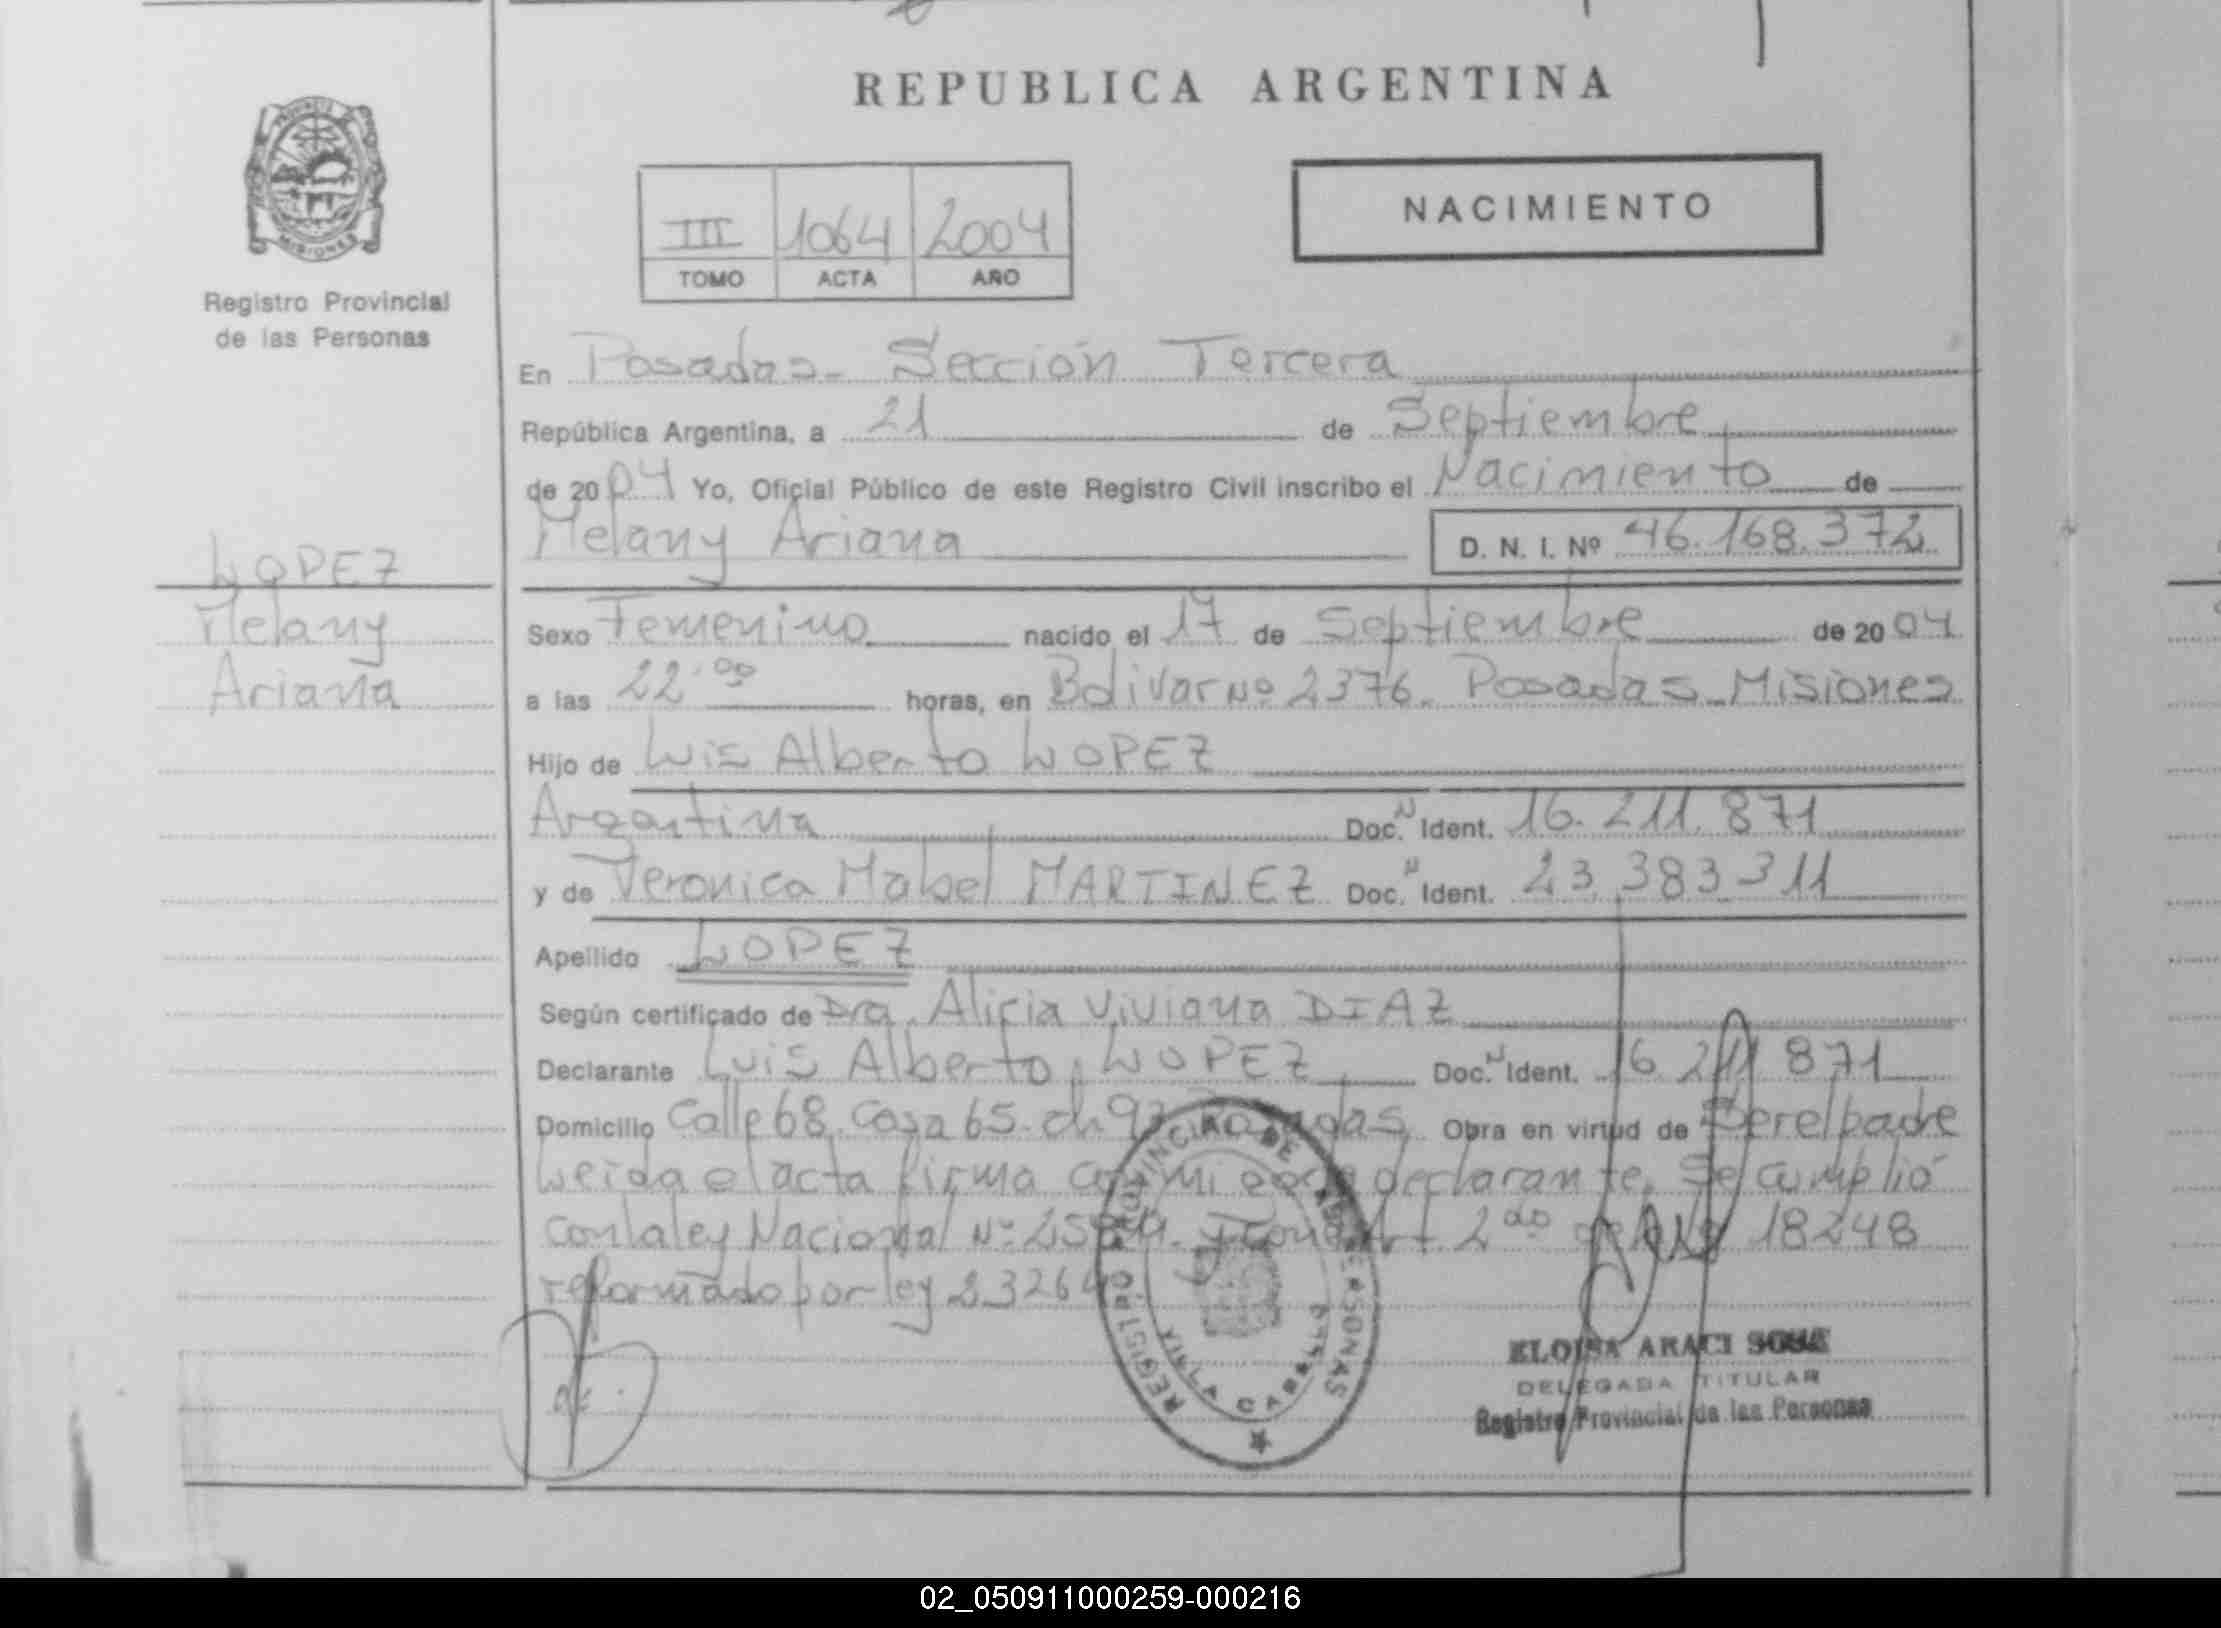 REPUBLICA ARGENTINA
PROVINCIA
MISIONES
Registro Provincial
de las Personas
III 1064 2004
TOMO ACTA AÑO
NACIMIENTO
En Posadas- Sección Tercera
República Argentina, a 21 de Septiembre
de 2004 Yo, Oficial Público de este Registro Civil inscribo el Nacimiento de
Melany Ariana D. N. I. Nº 46.168.372
LOPEZ
Melany
Ariana
Sexo Femenino nacido el 17 de Septiembre de 2004
a las 22:00 horas, en Bolivar Nº 2376. Posadas-Misiones
Hijo de Luis Alberto LOPEZ
Argentina Doc. N Ident. 16.211.871
y de Veronica Mabel MARTINEZ Doc. N Ident. 23.383.311
Apellido LOPEZ
Según certificado de Dra. Alicia Viviana DIAZ
Declarante Luis Alberto LOPEZ Doc. N Ident. 16.211.871
Domicilio Calle 68 Casa 65. ch. Posadas. Obra en virtud de Ser el padre
Leida el acta firma declarante. Se cumplió
con la ley Nacional Nº Art 2do 18248
reformado por ley 23264
REGISTRO PROVINCIAL DE LAS PERSONAS
ELOISA ARACI
DELEGADA TITULAR
Registro Provincial de las Personas
02_050911000259-000216